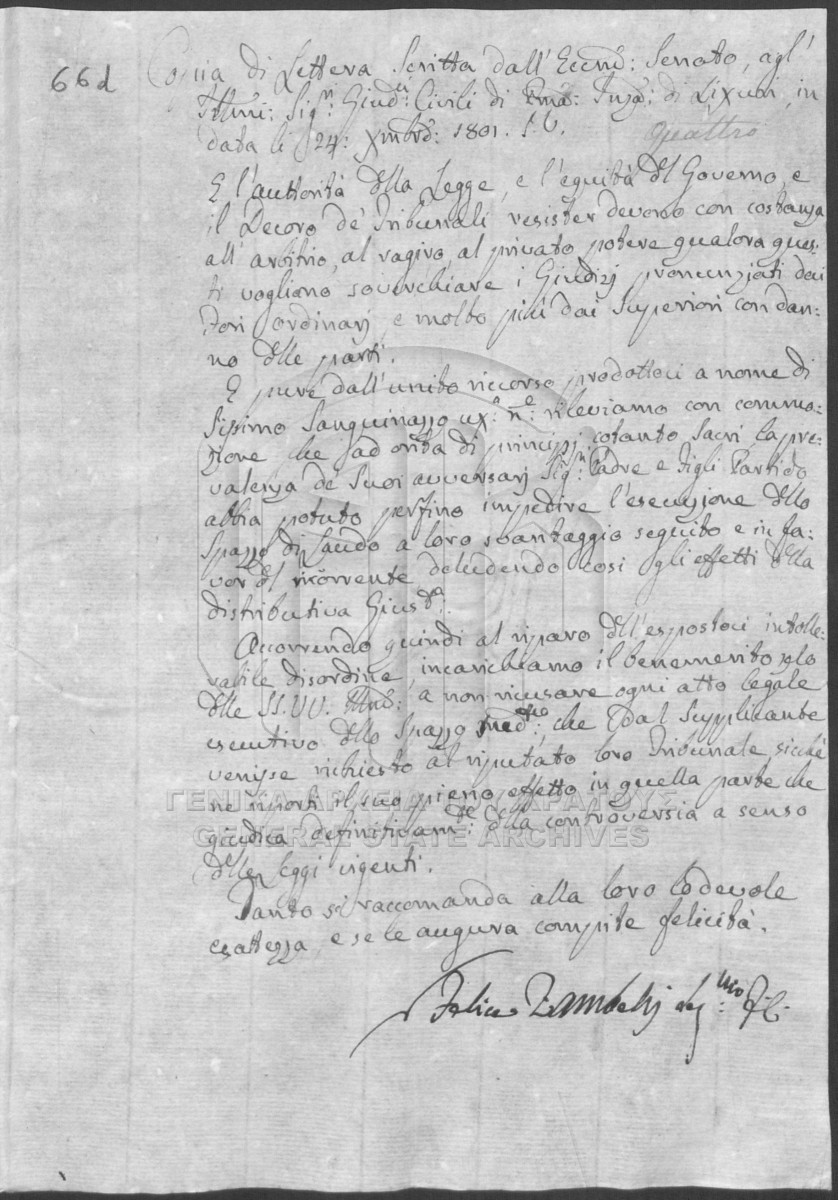 66d
Copia di Lettera Scritta dall' Eccmo: Senato, agl'
Illmi: Sigri: Giudi: Civili di Pma: Inza: di Lixuri, in
data li 24: Xmbre: 1801. S.V.
quattro
E l'autorità della Legge, e l'equità del Governo, e
il Decoro de' Tribunali resister devono con costanza
all' arbitrio, al ragiro, al privato potere qualora ques:
ti vogliono soverchiare i Giudizj pronunziati dai
Fori ordinarj, e molto più dai Superiori con dan:
no delle parti.
E pure dall'unito riccorso prodottoci a nome di
Sissimo Sanguinazzo ux: ne: rileviamo con commo:
zione che ad onta di principj cotanto Sacri la pre:
valenza de' Suoi avversarj Sigri: Padre e Figli Partido
abbia potuto perfino impedire l'esecuzione dello
Spazzo di Laudo a loro svantaggio seguito e in fa:
vor del ricorrente deludendo così gli effetti della
distributiva Giusta:.
Accorrendo quindi al riparo dell'espostoci intolle:
rabile disordine, incarichiamo il benemerito zelo
delle SS.VV. Illme: a non ricusare ogni atto legale
esecutivo dello Spazzo medmo:, che dal Supplicante
venisse richiesto al riputato loro Tribunale, sicchè
ne riporti il suo pieno effetto in quella parte che
giudica definitivamte: della controversia a senso
delle Leggi vigenti.
Tanto si raccomanda alla loro lodevole
esattezza, e se le augura compite felicità.
Felice Zambelli
ΓΕΝΙΚΑ ΑΡΧΕΙΑ ΤΟΥ ΚΡΑΤΟΥΣ
GENERAL STATE ARCHIVES